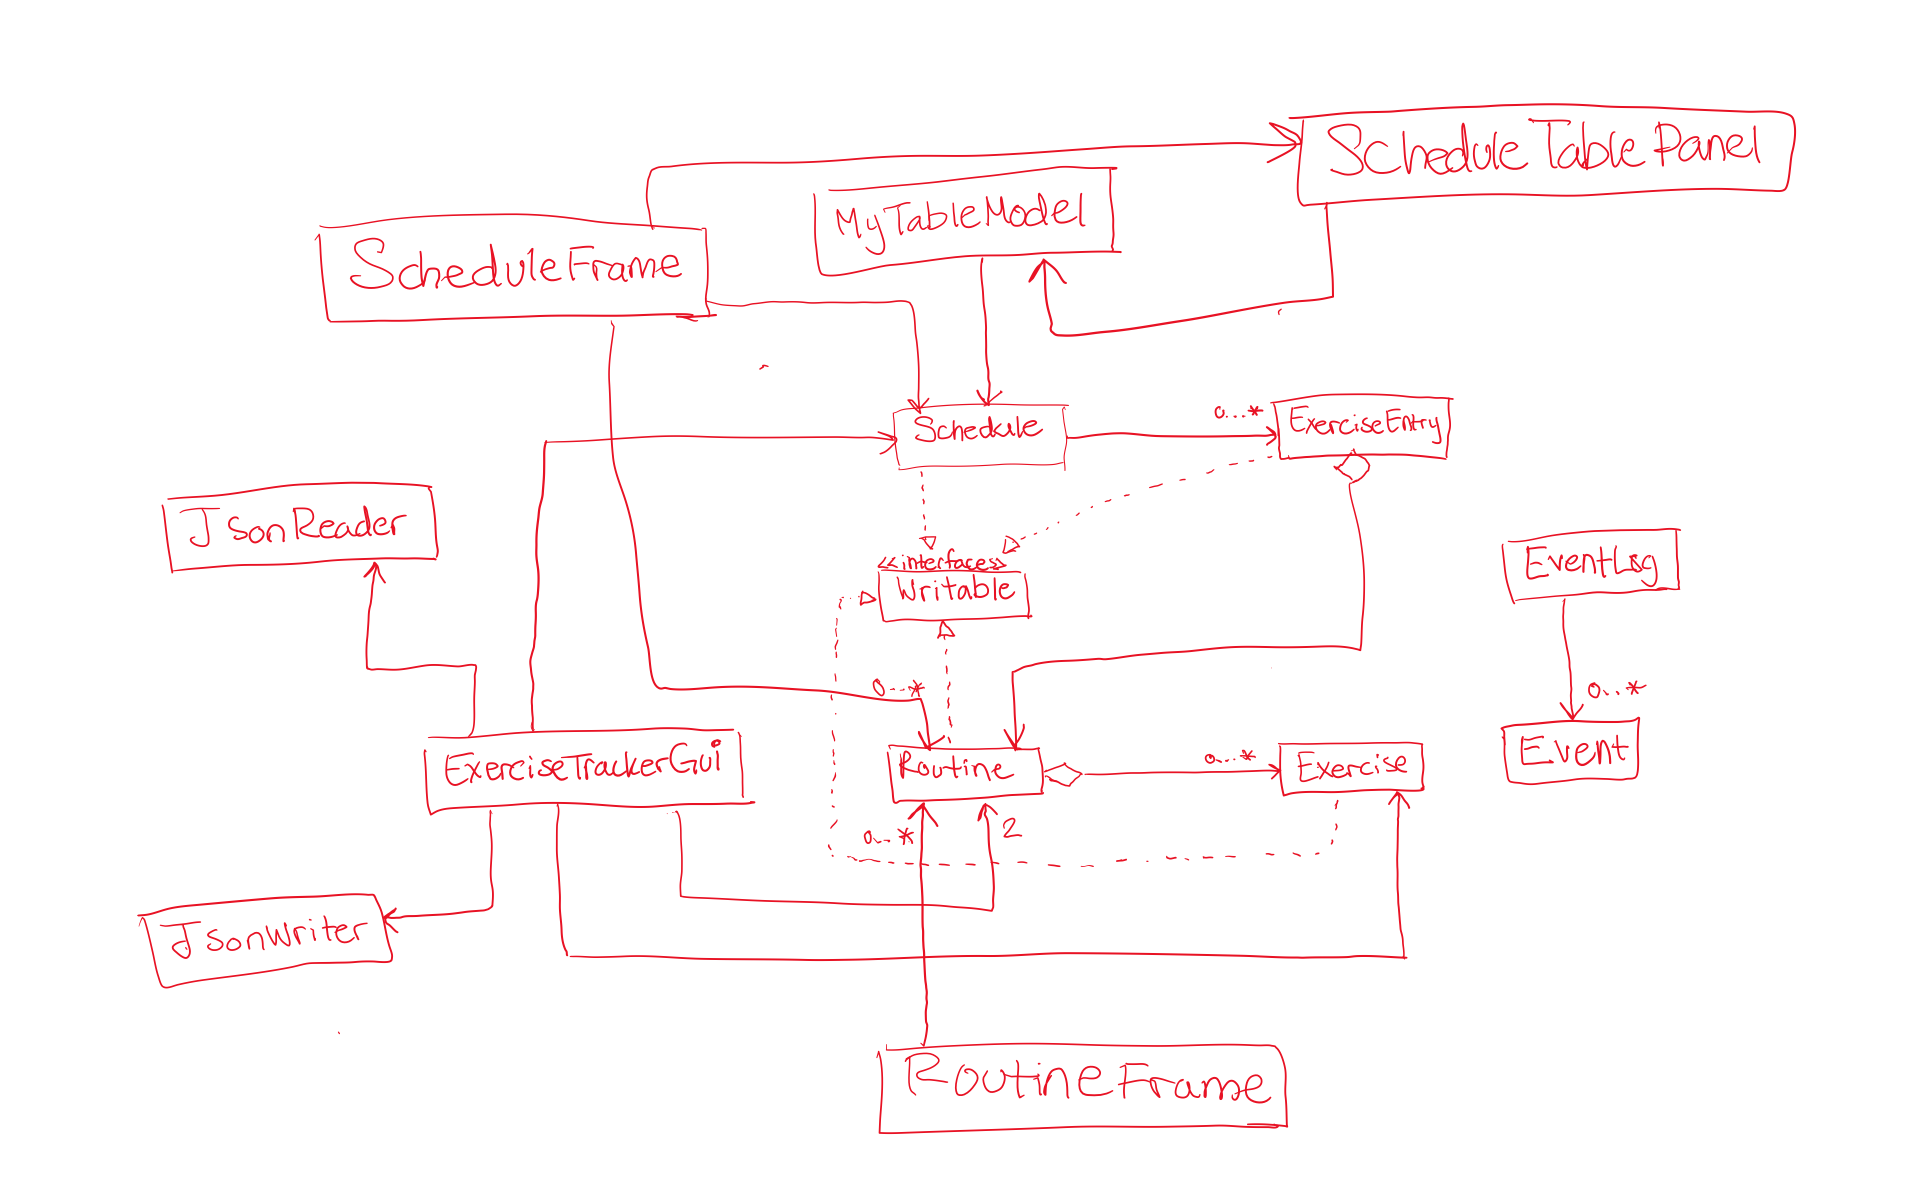 ScheduleTablePanel
MyTableModel
ScheduleFrame
0...*
ExerciseEntry
Schedule
JsonReader
<<interfaces>>
Writable
EventLog
0...*
0...*
Event
ExerciseTrackerGui
Routine
0...*
Exercise
0...*
2
JsonWriter
RoutineFrame